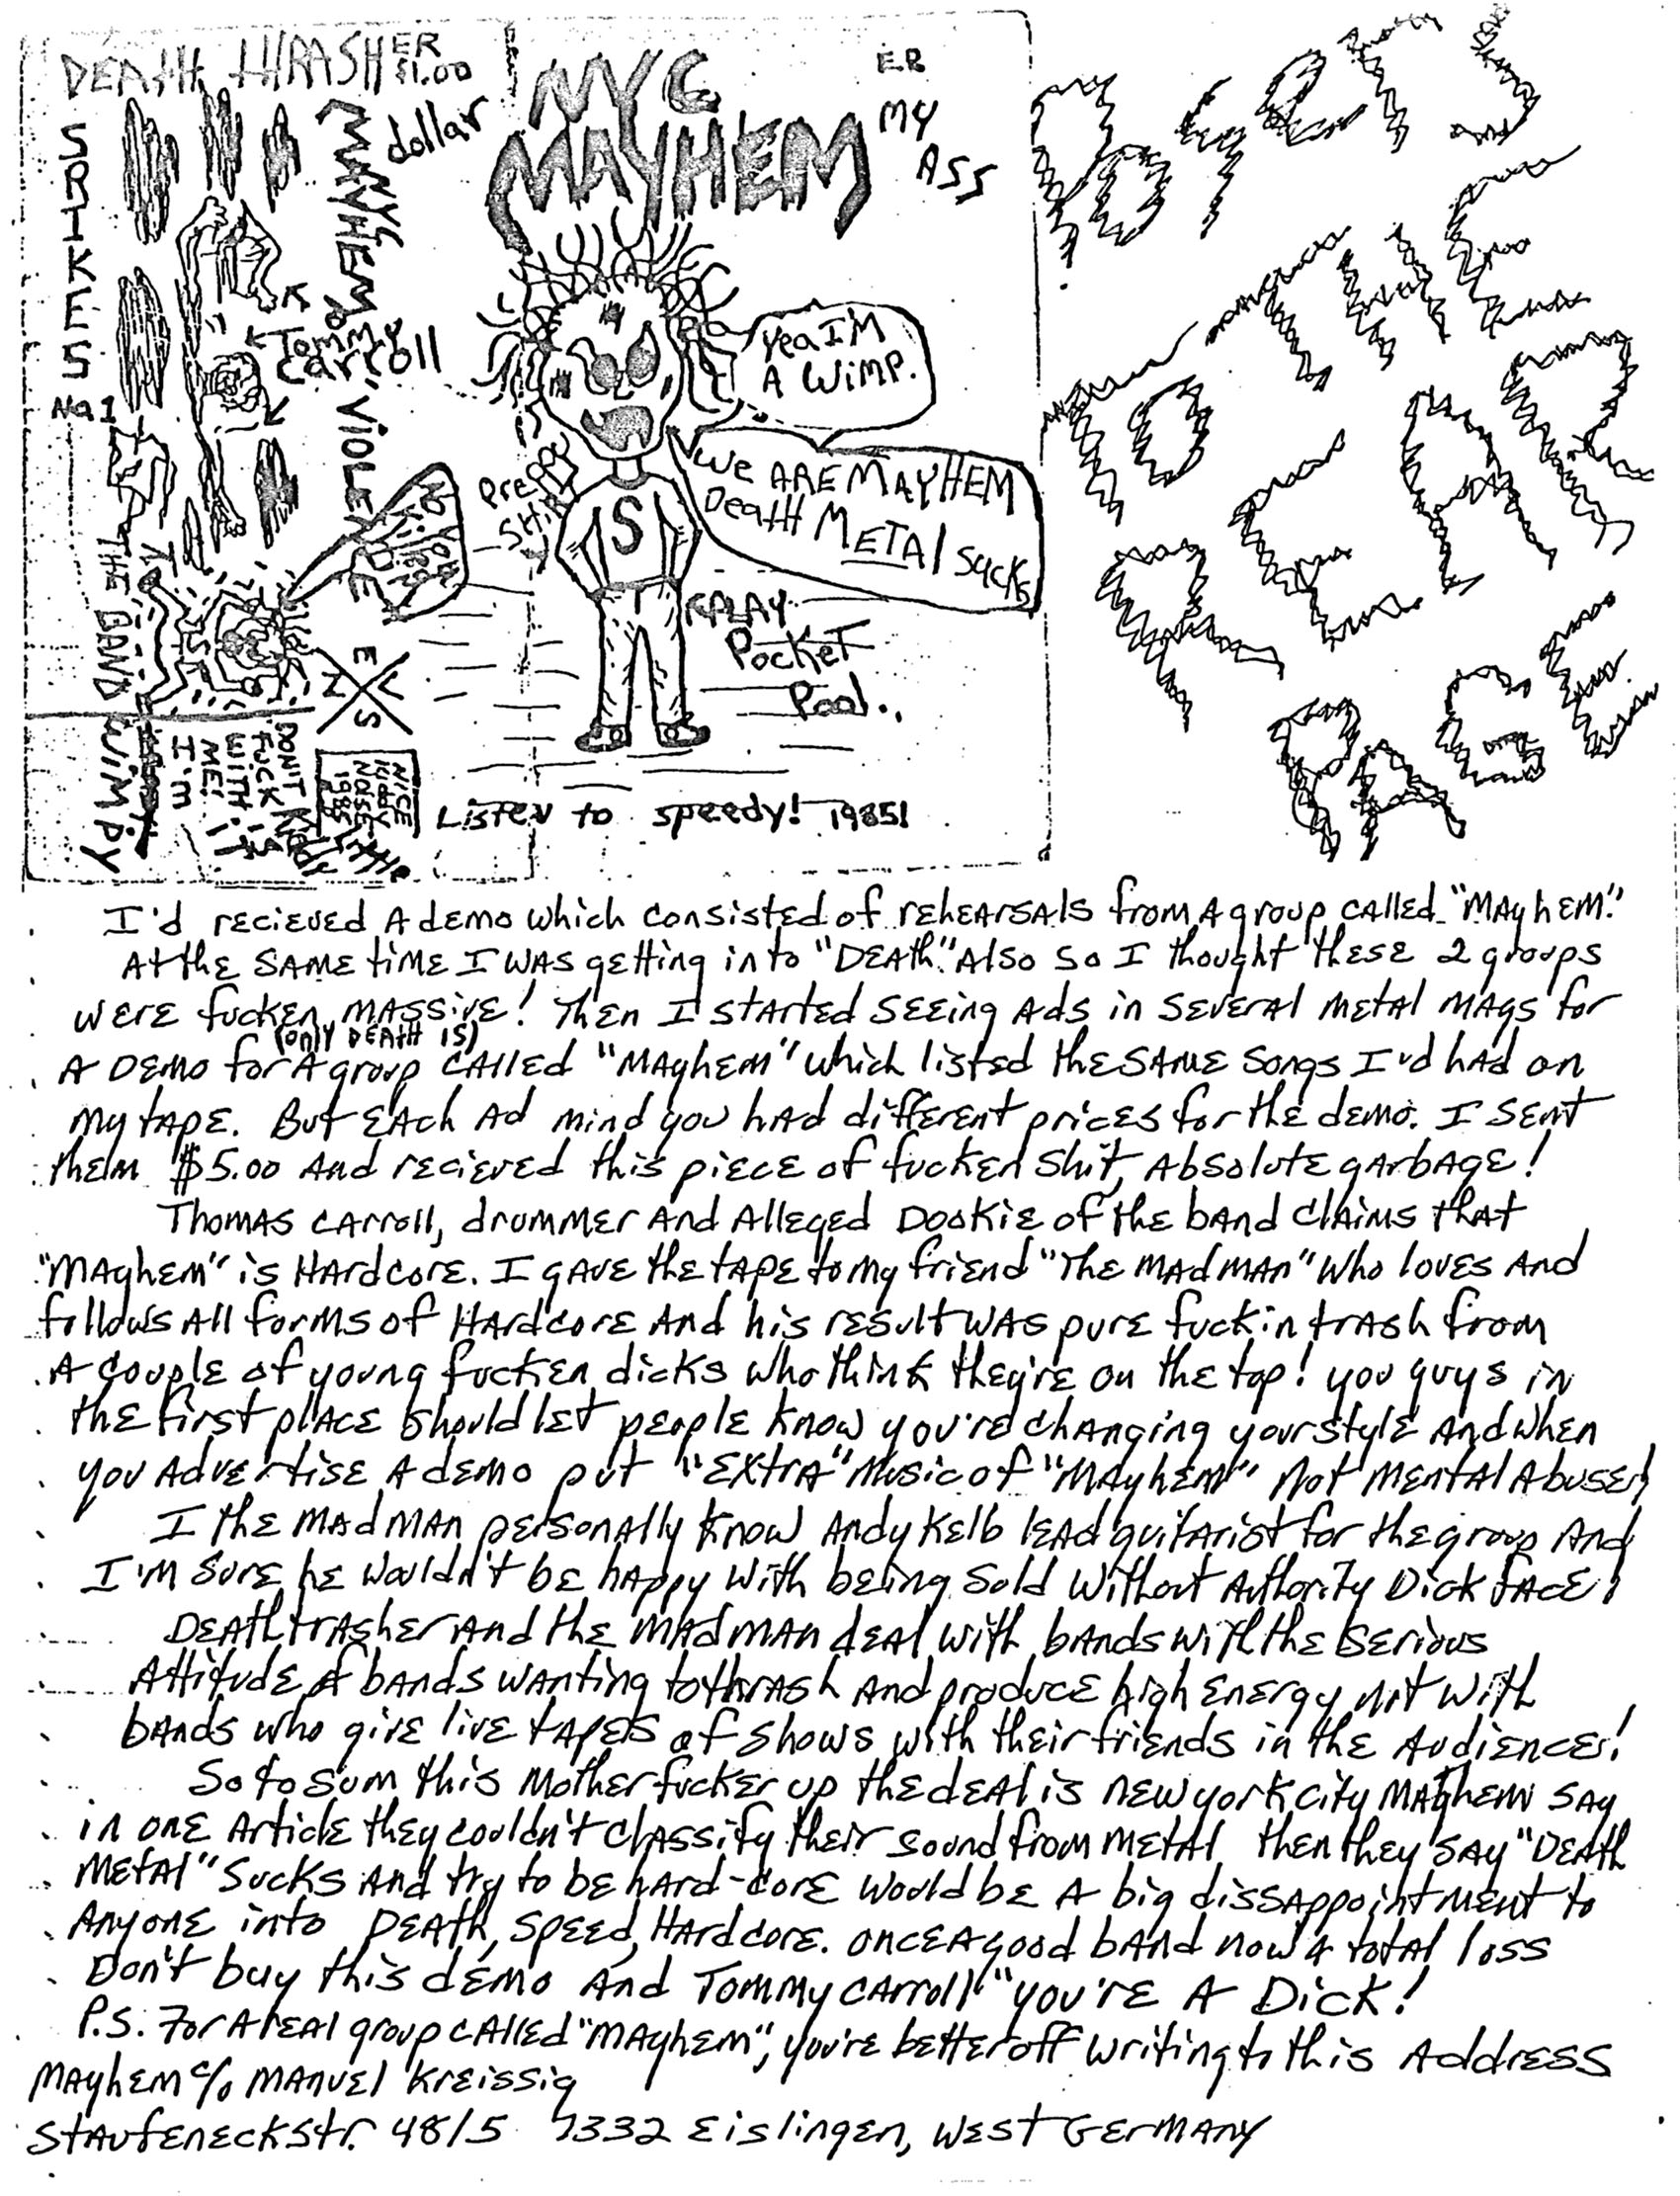 DEATH THRASHER
$1.00
dollar
SRIKES
No 1
NYC
MAYHEM
VIOLENCE
Tommy
Carroll
NYC
MAYHEM
ER
MY
ASS
Yea I'M
A WIMP.
We ARE MAYHEM
Death METAl sucks
S
PLAY
Pocket
Pool..
EVSN
THE BAND
WIMPY
DON'T
FUCK
WITH
ME!
I'm
NICE
KIDDY
NOISE
1985
Listen to speedy! 1985!
DIRECT
TO THE
REAR
PAGE
I'd recieved A demo which consisted of rehearsals from A group called "Mayhem."
At the same time I was getting into "Death." Also so I thought these 2 groups
were fucken massive! Then I started seeing Ads in several metal mags for
(only DEATH IS)
A Demo for A group called "Mayhem" which listed the same songs I'd had on
my tape. But each Ad mind you had different prices for the demo. I sent
them $5.00 And recieved this piece of fucken shit, Absolute garbage!
Thomas Carroll, drummer And Alleged Dookie of the band claims that
"Mayhem" is Hardcore. I gave the tape to my friend "The Madman" who loves And
follows All forms of Hardcore And his result was pure fuckin trash from
A couple of young fucken dicks who think they're on the top! you guys in
the first place should let people know you're changing your style And when
you Advertise A demo put "Extra" Music of "Mayhem" Not Mental Abuse!
I the madman personally know Andy Kelb lead guitarist for the group And
I'm sure he wouldn't be happy with being sold without Authority Dick face!
Deathtrasher And the madman deal with bands with the serious
Attitude of bands wanting to thrash And produce high energy not with
bands who give live tapes of shows with their friends in the Audiences!
So to sum this Motherfucker up the deal is new york city Mayhem say
in one Article they couldn't classify their sound from metal then they say "Death
Metal" sucks And try to be hard-core would be A big dissappointment to
Anyone into Death, Speed, Hardcore. once A good band now A total loss
Don't buy this demo And Tommy Carroll "you're A Dick!
P.S. For A real group called "Mayhem", you're better off writing to this Address
Mayhem c/o Manuel Kreissig
Staufeneckstr. 48/5 7332 Eislingen, West Germany